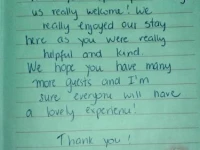 us really welcome! We
really enjoyed our stay
here as you were really
helpful and kind.
We hope you have many
more guests and I'm
sure everyone will have
a lovely experience!
Thank you!